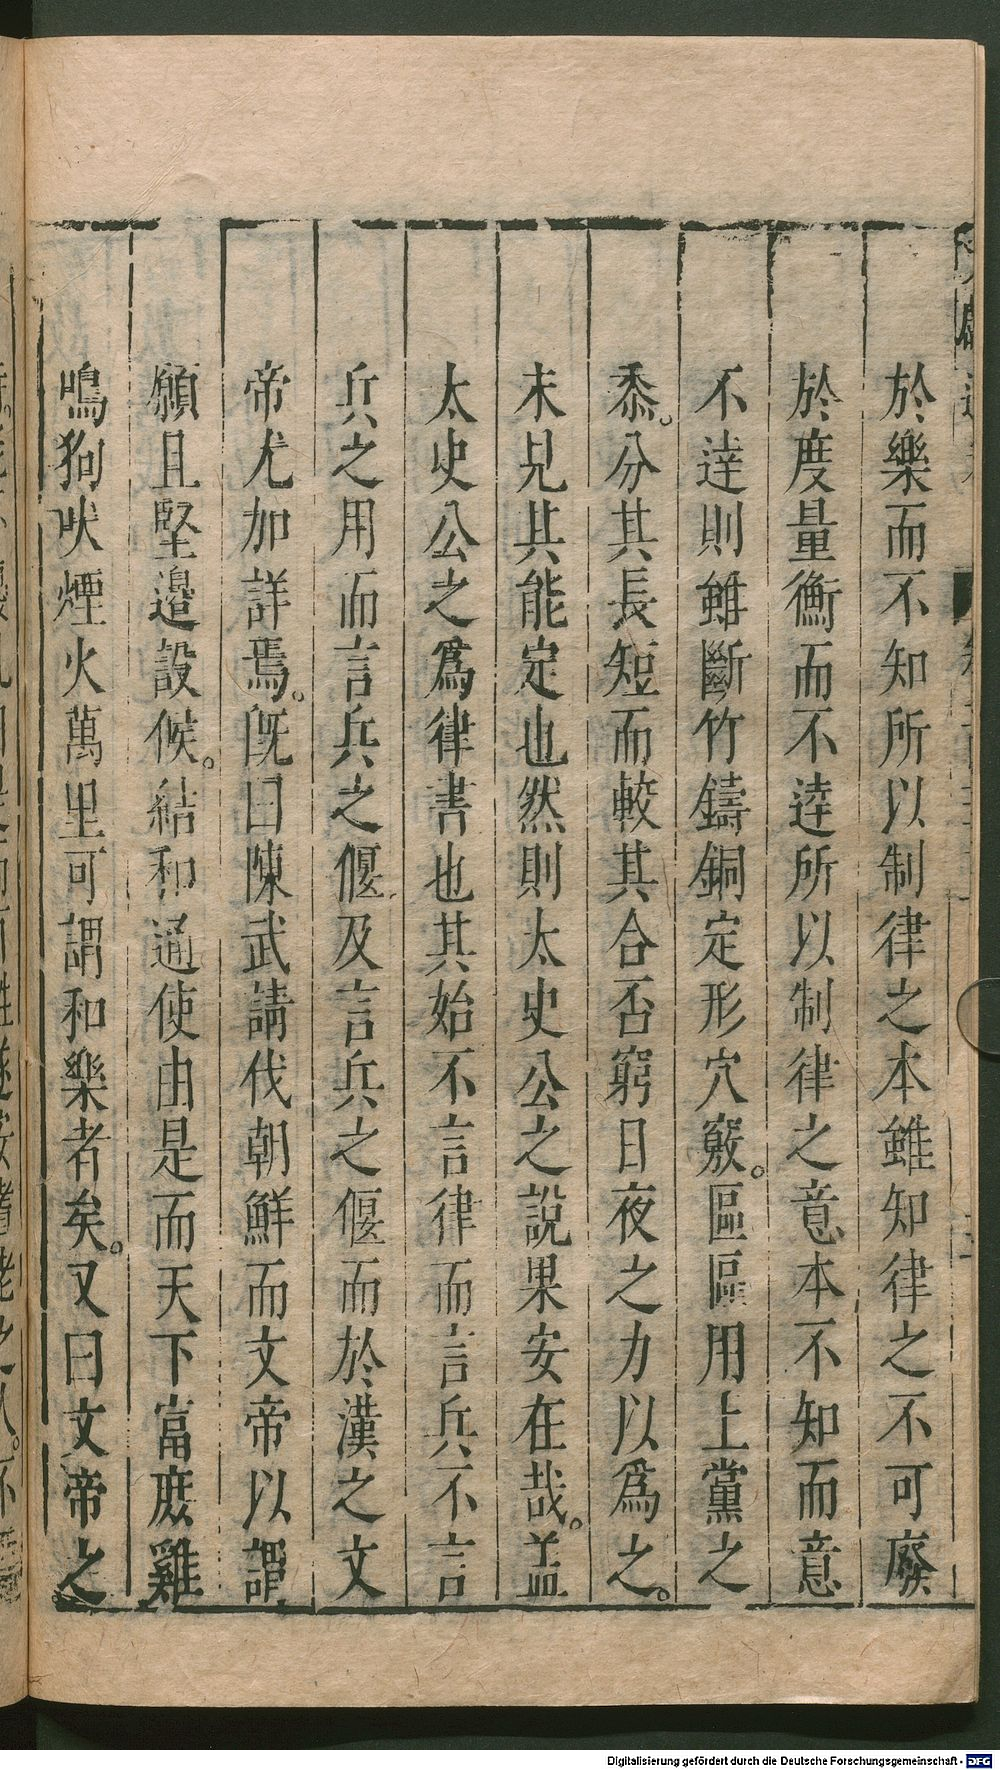 於樂而不知所以制律之本雖知律之不可廢
於度量衡而不達所以制律之意本不知而意
不達則雖斷竹鑄銅定形穴竅。區區用上黨之
黍。分其長短而較其合否窮日夜之力以爲之。
未見其能定也然則太史公之說果安在哉。盖
太史公之爲律書也其始不言律而言兵不言
兵之用而言兵之偃及言兵之偃而於漢之文
帝尤加詳焉。旣曰陳武請伐朝鮮而文帝以謂
願且堅邉設候。結和通使由是而天下富庶雞
鳴狗吠煙火萬里可謂和樂者矣。又曰文帝之
Digitalisierung gefördert durch die Deutsche Forschungsgemeinschaft - DFG